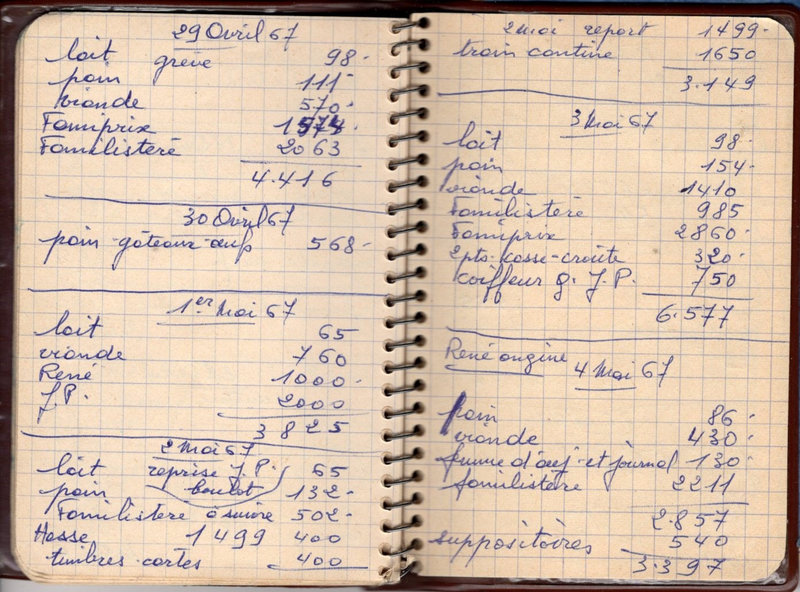 29 Avril 67
lait grève 98-
pain 111-
viande 570-
Famiprix 1574-
Familisteré 2063
4.416
30 Avril 67
pain-gâteaux-œufs 568-
1er Mai 67
lait 65
viande 760
René 1000-
J.P. 2000
3825
2 Mai 67
lait reprise J.P. 65
pain boulot 132-
Familistere à suivre 502-
Messe 1499 400
timbres-cartes 400
2 Mai report 1499-
train cantine 1650
3.149
3 Mai 67
lait 98-
pain 154-
viande 1410
Familisteré 985
Famiprix 2860-
2 pts-casse-croûte 320-
coiffeur g. J.P. 750
6.577
René angine 4 Mai 67
pain 86-
viande 430-
d'œuf-et journal 130-
familistère 2211
2.857
suppositoires 540
3.397